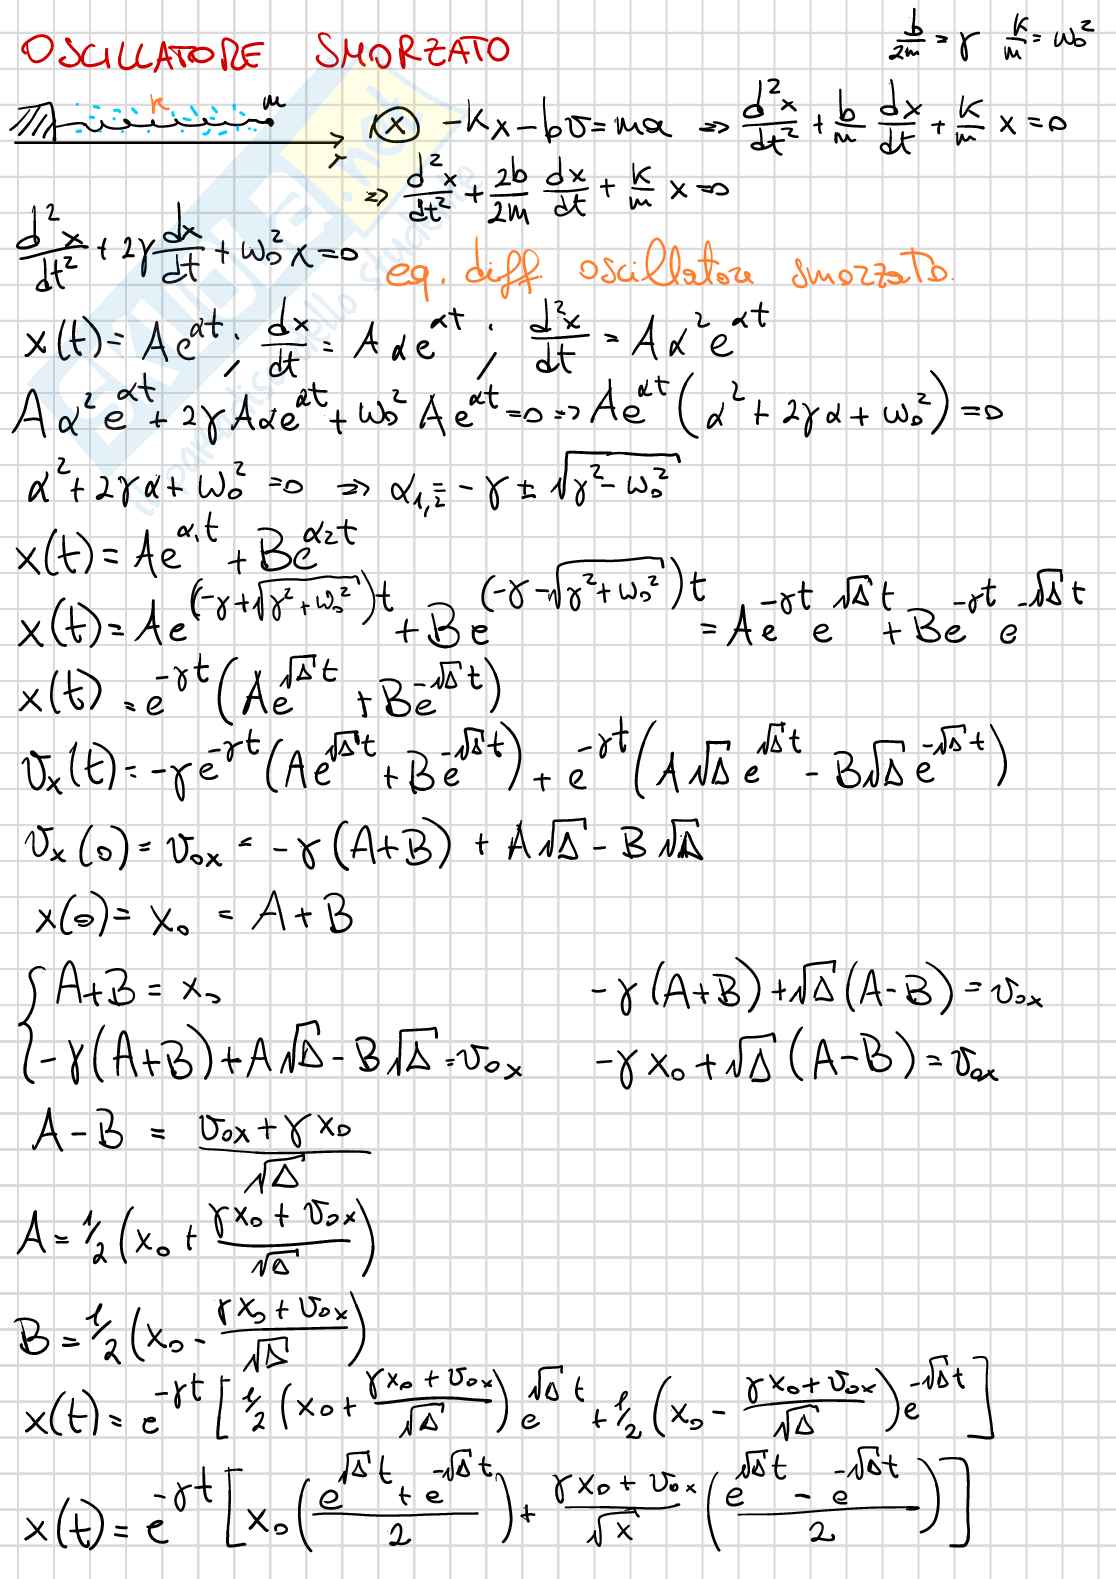 OSCILLATORE SMORZATO
b/2m = γ   k/m = ω₀²
k   m
x
(x) -kx - bv = ma => d²x/dt² + b/m dx/dt + k/m x = 0
=> d²x/dt² + 2b/2m dx/dt + k/m x = 0
d²x/dt² + 2γ dx/dt + ω₀² x = 0   eq. diff oscillatore smorzato.
x(t) = A e^(αt) ; dx/dt = A α e^(αt) ; d²x/dt² = A α² e^(αt)
A α² e^(αt) + 2γ A α e^(αt) + ω₀² A e^(αt) = 0 => A e^(αt) (α² + 2γα + ω₀²) = 0
α² + 2γα + ω₀² = 0 => α₁,₂ = -γ ± √(γ² - ω₀²)
x(t) = A e^(α₁t) + B e^(α₂t)
x(t) = A e^((-γ + √(γ² + ω₀²))t) + B e^((-γ - √(γ² + ω₀²))t) = A e^(-γt) e^(√Δ t) + B e^(-γt) e^(-√Δ t)
x(t) = e^(-γt) (A e^(√Δ t) + B e^(-√Δ t))
vₓ(t) = -γ e^(-γt) (A e^(√Δ t) + B e^(-√Δ t)) + e^(-γt) (A √Δ e^(√Δ t) - B √Δ e^(-√Δ t))
vₓ(0) = v₀ₓ = -γ (A+B) + A √Δ - B √Δ
x(0) = x₀ = A + B
{ A+B = x₀   -γ (A+B) + √Δ (A-B) = v₀ₓ
{ -γ (A+B) + A √Δ - B √Δ = v₀ₓ   -γ x₀ + √Δ (A-B) = v₀ₓ
A - B = (v₀ₓ + γ x₀)/√Δ
A = 1/2 (x₀ + (γx₀ + v₀ₓ)/√Δ)
B = 1/2 (x₀ - (γx₀ + v₀ₓ)/√Δ)
x(t) = e^(-γt) [1/2 (x₀ + (γx₀ + v₀ₓ)/√Δ) e^(√Δ t) + 1/2 (x₀ - (γx₀ + v₀ₓ)/√Δ) e^(-√Δ t)]
x(t) = e^(-γt) [x₀ ((e^(√Δ t) + e^(-√Δ t))/2) + (γx₀ + v₀ₓ)/√x ((e^(√Δ t) - e^(-√Δ t))/2)]